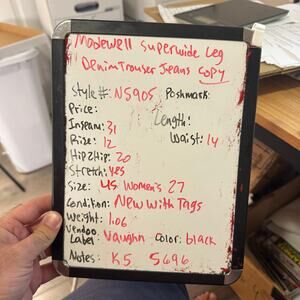 Madewell Superwide Leg
Denim Trouser Jeans COPY
Style#: NS905 Poshmark:
Price: Length:
Inseam: 31 Waist: 14
Rize: 12
Hip2Hip: 20
Stretch: Yes
Size: US Women's 27
Condition: New With Tags
Weight: 1.06
Vendoo
Label: Vaughn Color: black
Notes: K5 5696